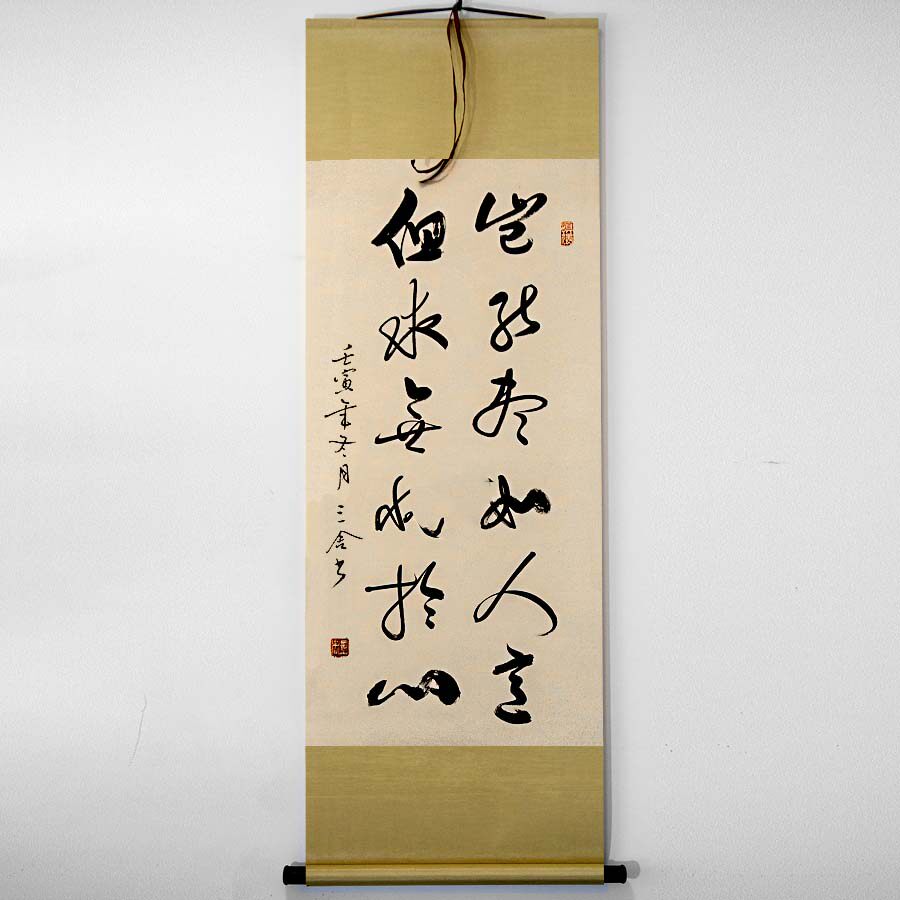 岂能尽如人意
但求無愧於心
壬寅年冬月三舍书